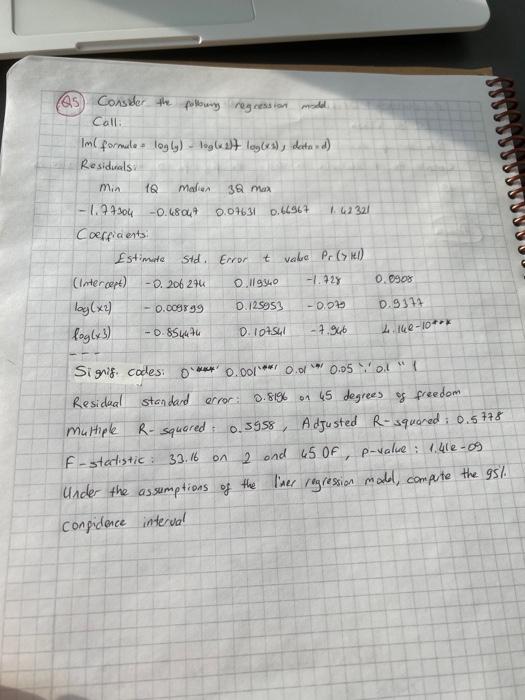 Q5) Consider the following regression model.
Call:
lm(formula = log(y) ~ log(x2) + log(x3), data = d)
Residuals:
Min 1Q Median 3Q max
-1.77304 -0.48047 0.07631 0.66967 1.42321
Coefficients:
Estimate Std. Error t value Pr(>|t|)
(Intercept) -0.206274 0.119340 -1.728 0.0908
log(x2) -0.009899 0.125953 -0.079 0.9377
log(x3) -0.854474 0.107541 -7.946 4.14e-10***
---
Signif. codes: 0 '***' 0.001 '**' 0.01 '*' 0.05 '.' 0.1 ' ' 1
Residual standard error: 0.8196 on 45 degrees of freedom
Multiple R-squared: 0.5958, Adjusted R-squared: 0.5778
F-statistic: 33.16 on 2 and 45 DF, p-value: 1.41e-09
Under the assumptions of the liner regression model, compute the 95%
confidence interval